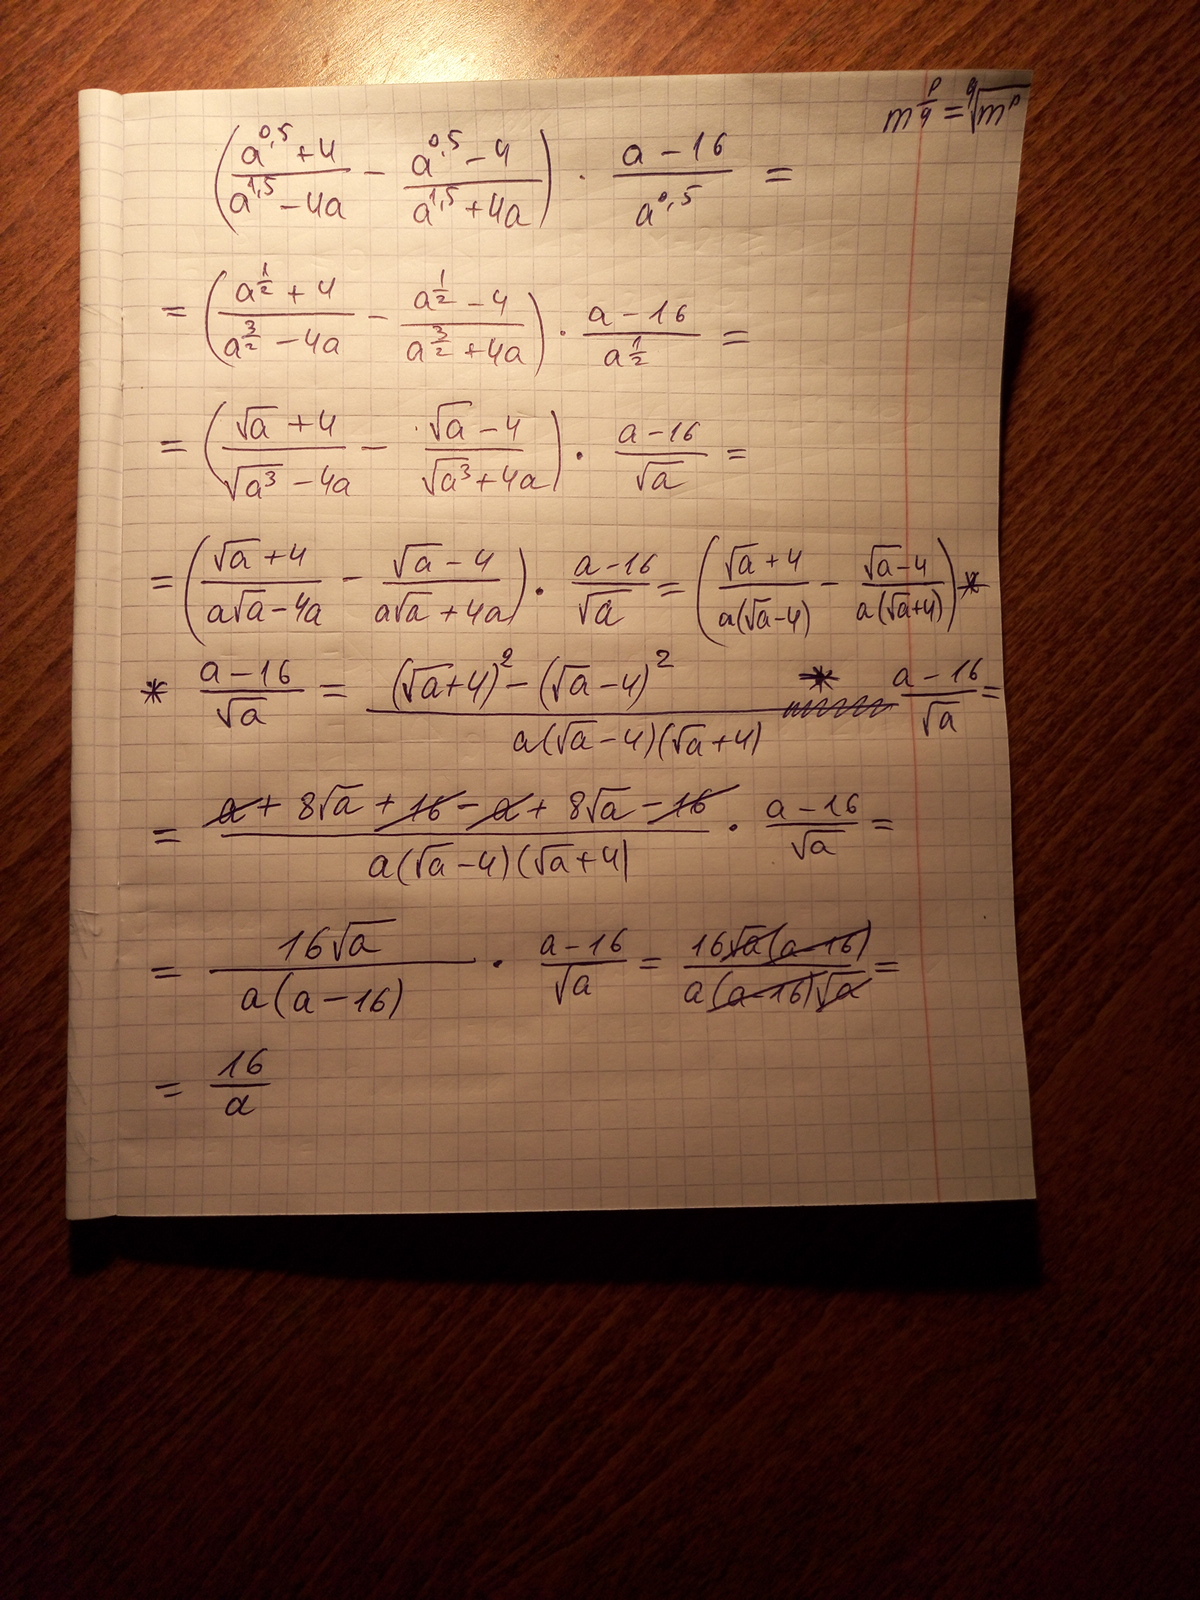 m^(p/q) = ^q√(m^p)
((a^0,5 + 4)/(a^1,5 − 4a) − (a^0,5 − 4)/(a^1,5 + 4a)) · (a − 16)/(a^0,5) =
= ((a^(1/2) + 4)/(a^(3/2) − 4a) − (a^(1/2) − 4)/(a^(3/2) + 4a)) · (a − 16)/(a^(1/2)) =
= ((√a + 4)/(√(a^3) − 4a) − (√a − 4)/(√(a^3) + 4a)) · (a − 16)/(√a) =
= ((√a + 4)/(a√a − 4a) − (√a − 4)/(a√a + 4a)) · (a − 16)/(√a) = ((√a + 4)/(a(√a − 4)) − (√a − 4)/(a(√a + 4))) *
* (a − 16)/(√a) = ((√a + 4)^2 − (√a − 4)^2)/(a(√a − 4)(√a + 4)) * (a − 16)/(√a) =
= (a + 8√a + 16 − a + 8√a − 16)/(a(√a − 4)(√a + 4)) · (a − 16)/(√a) =
= (16√a)/(a(a − 16)) · (a − 16)/(√a) = (16√a(a − 16))/(a(a − 16)√a) =
= 16/a